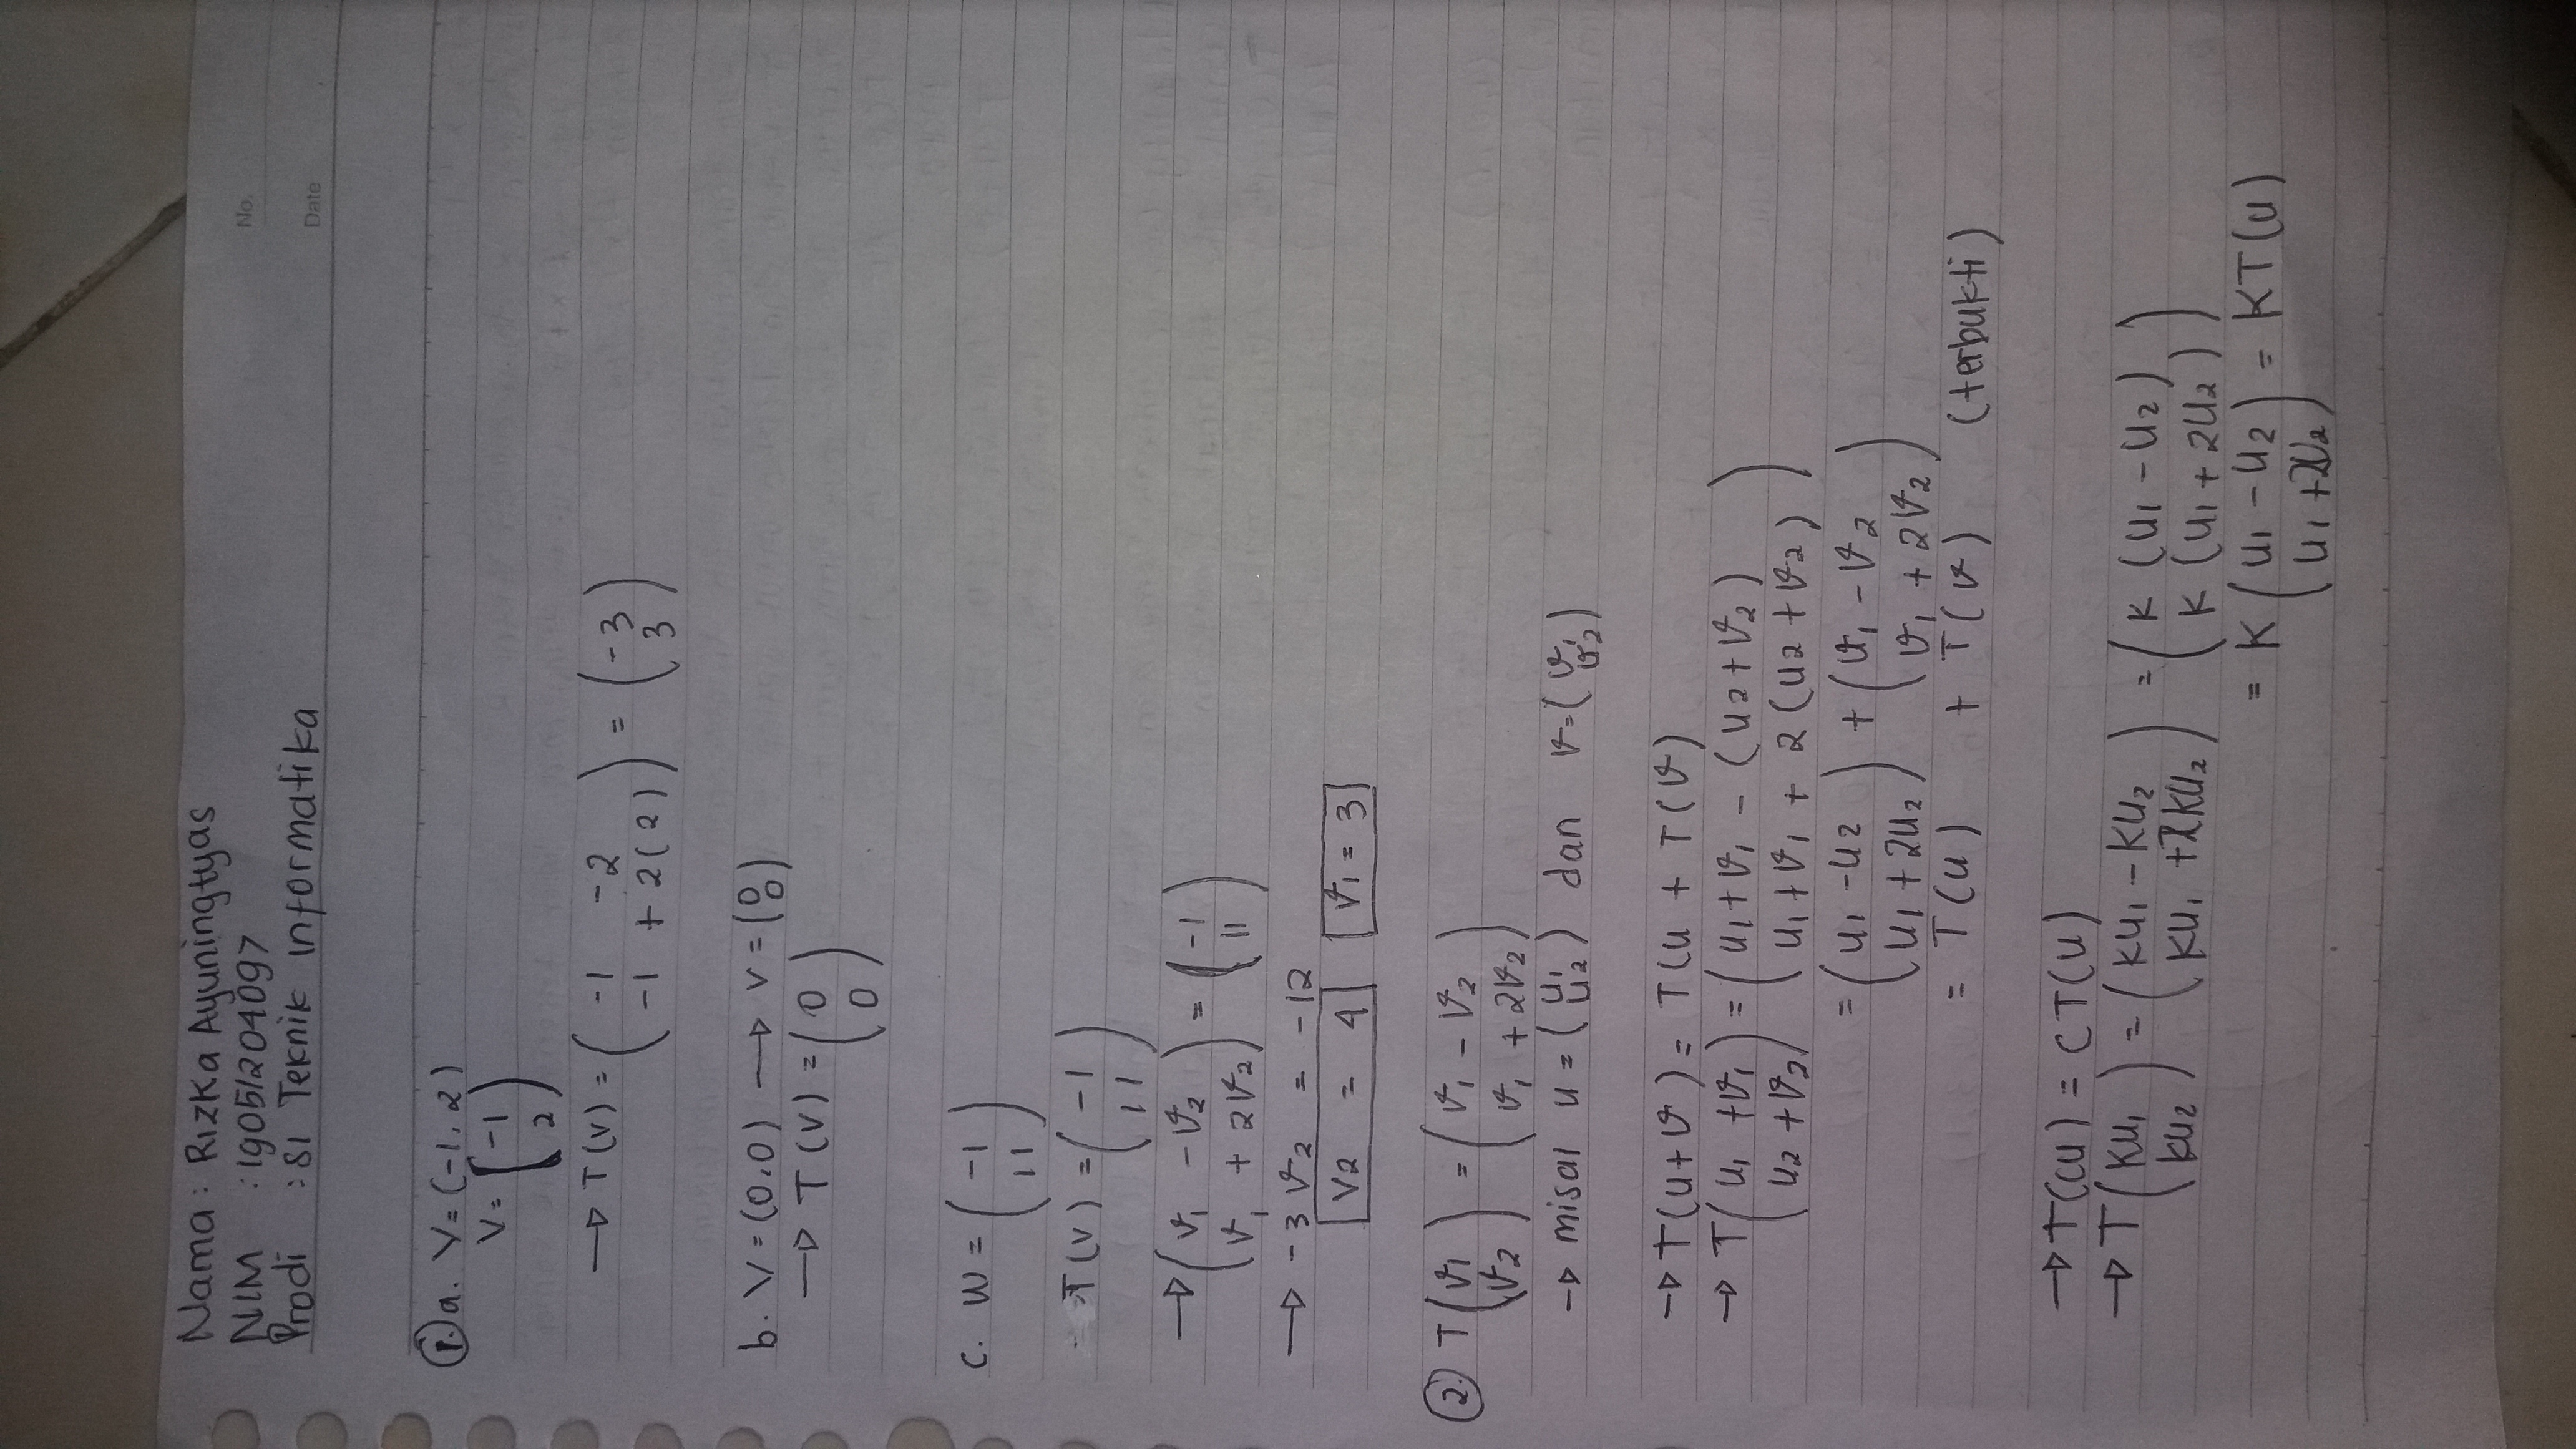 Nama : Rizka Ayuningtyas
NIM : 19051204097
Prodi : S1 Teknik informatika
No.
Date
1. a. V = (-1, 2)
V = (-1
2)
→ T(v) = (-1 -2
-1 + 2(2)) = (-3
3)
b. V = (0,0) → v = (0
0)
→ T(v) = (0
0)
c. W = (-1
11)
T(v) = (-1
11)
→ (v₁ - v₂
v₁ + 2v₂) = (-1
11)
→ -3 v₂ = -12
v2 = 4 v₁ = 3
2. T(v₁
v₂) = (v₁ - v₂
v₁ + 2v₂)
→ misal u = (u₁
u₂) dan v = (v₁
v₂)
→ T(u+v) = T(u + T(v)
→ T(u₁ + v₁
u₂ + v₂) = (u₁ + v₁ - (u₂ + v₂)
u₁ + v₁ + 2(u₂ + v₂))
= (u₁ - u₂
u₁ + 2u₂) + (v₁ - v₂
v₁ + 2v₂)
= T(u) + T(v) (terbukti)
→ T(cu) = CT(u)
→ T(ku₁
ku₂) = (ku₁ - ku₂
ku₁ + 2ku₂) = (k (u₁ - u₂)
k (u₁ + 2u₂))
= k (u₁ - u₂
u₁ + 2u₂) = KT(u)